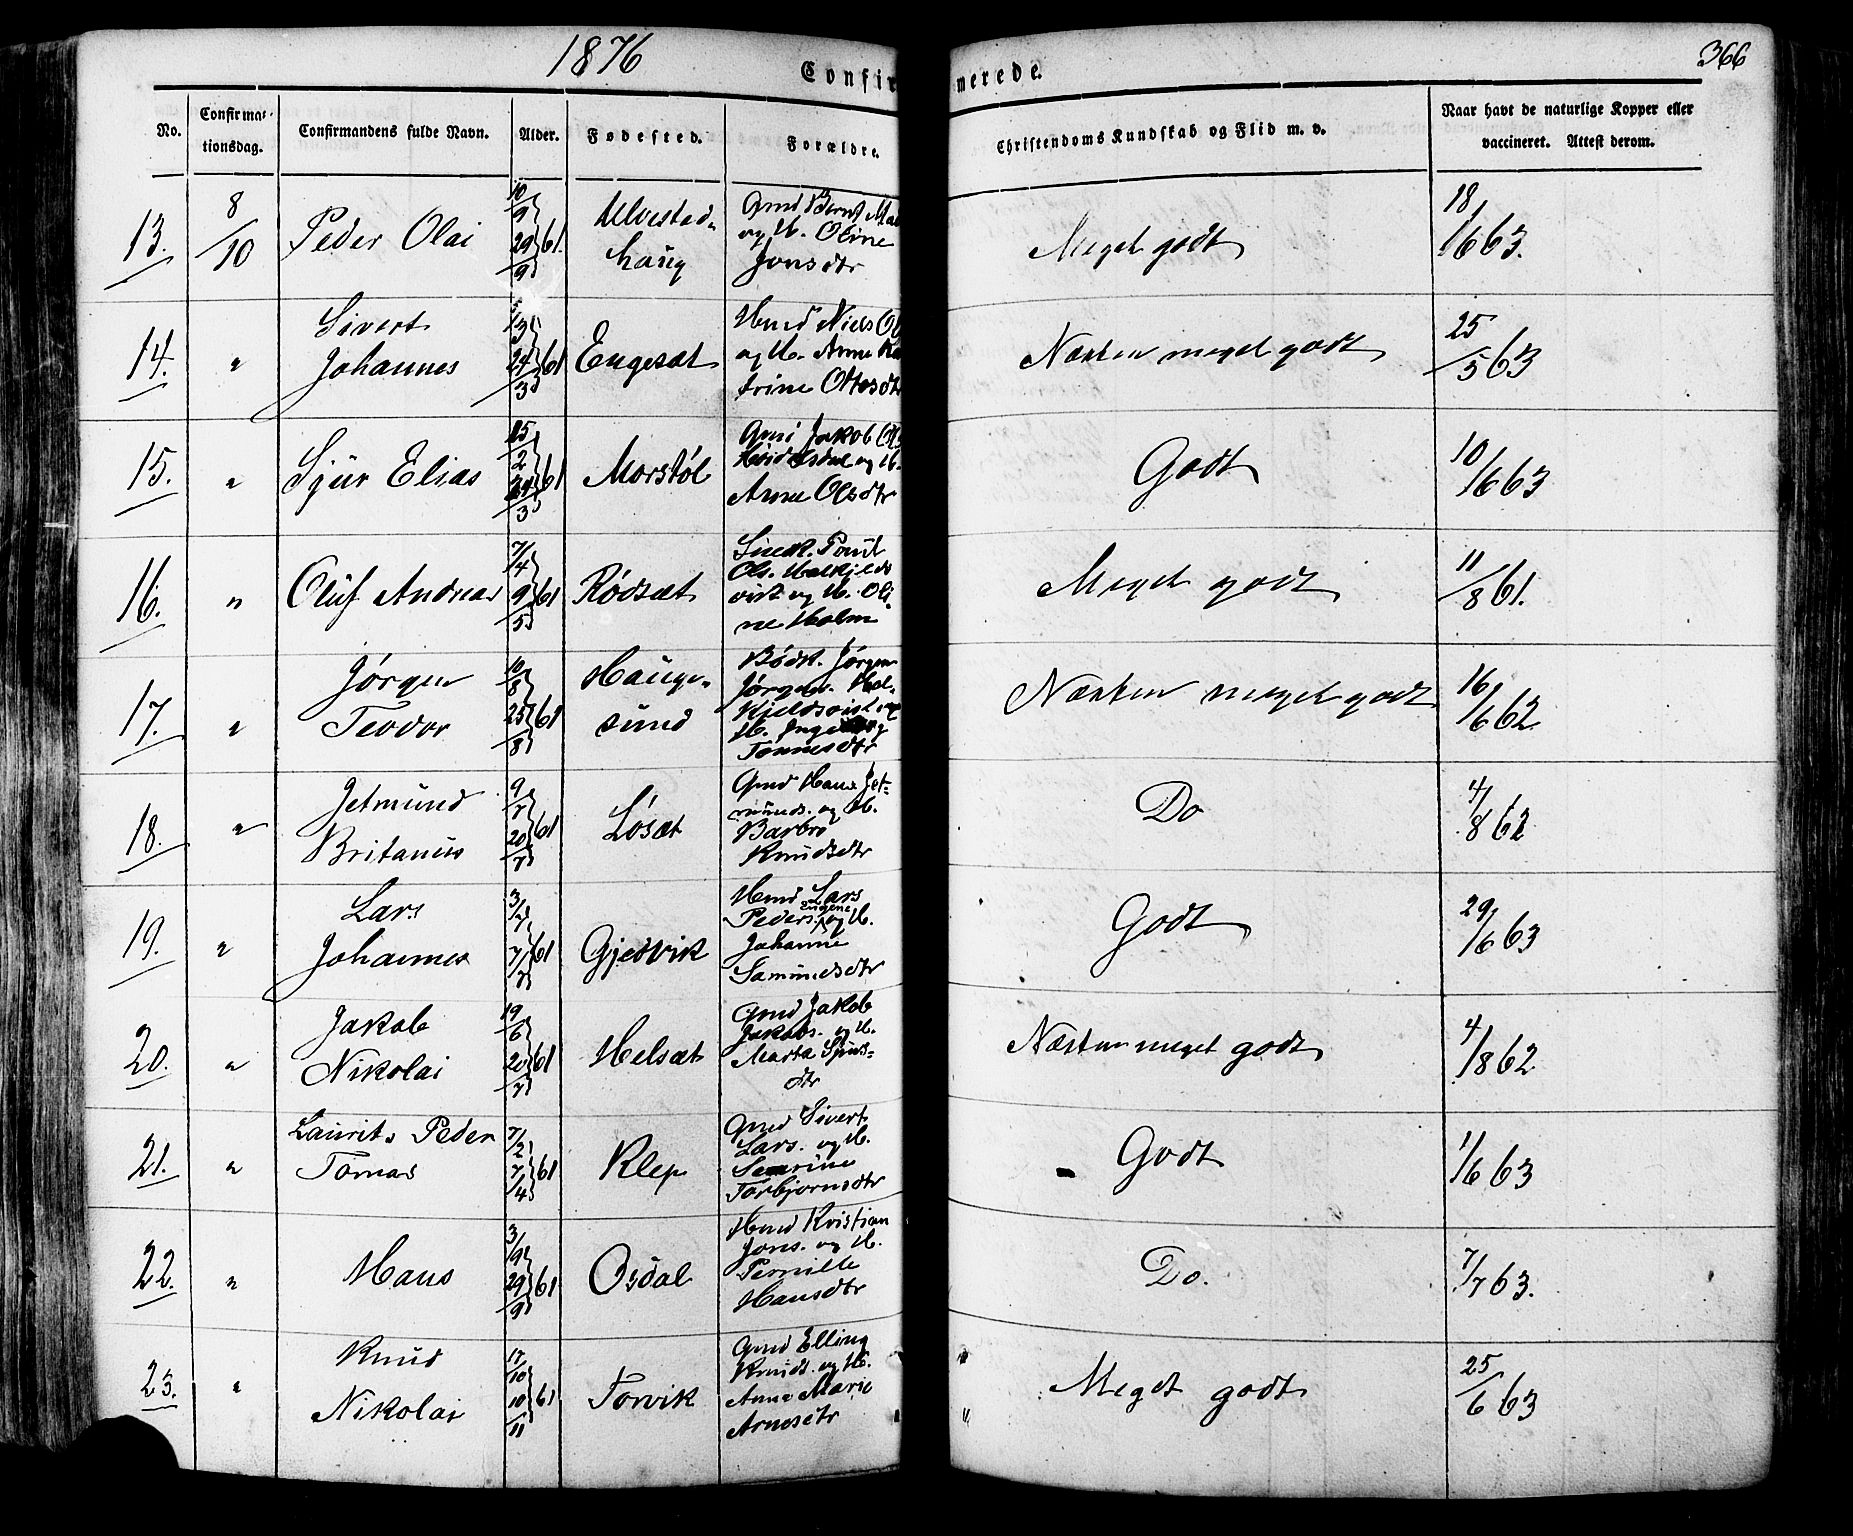 1876
366
Confirmerede.
No.
Confirmationsdag.
Confirmandens fulde Navn.
Alder.
Fødested.
Forældre.
Christendoms Kundskab og Flid m. v.
Naar havt de naturlige Kopper eller
vaccineret. Attest derom.
13. 8/10 Peder Olai 10/9 29/9 61. Ulvestad-
haug
Gmd Bernt
og H. Oline
Jonsdtr
Meget godt 18/6 63.
14. " Sivert
Johannes 24/3 61 Engesæt
Hmd Niels
og H. Anne Ka
trine Ottosdtr
Næsten meget godt 25/5 63
15. " Sjur Elias 25/2 24/3 61 Morstøl
Gmd Jakob
og H.
Anne Olsdtr
Godt 10/6 63
16. " Oluf Andreas 7/4 9/5 61 Rødsæt
Poul
Ols. Halkjelds
vik og H. Oli-
ne Holm
Meget godt 11/8 61.
17. " Jørgen
Teodor 10/8 25/8 61 Hauge-
sund
Bødk. Jørgen
Jørgens. Hal-
kjeldsvik og
H. Ingeborg
Tønnesdtr
Næsten meget godt 16/6 62
18. " Jetmund
Britanius 9/7 20/7 61 Løsæt
Gmd Hans Jet-
munds. og H.
Barbro
Knudsdtr
Do 4/8 62
19. " Lars
Johannes 3/7 7/7 61 Gjedvik
Hmd Lars
Peders. og H.
Johanne
Samundsdtr
Godt 29/6 63
20. " Jakob
Nikolai 19/6 20/7 61 Helsæt
Gmd Jakob
Jakobs. og H.
Marta Sjurs-
dtr
Næsten meget godt 4/8 62
21. " Laurits Peder
Tomas 7/2 7/4 61 Klep
Gmd Sivert
Lars. og H.
Severine
Torbjørnsdtr
Godt 1/6 63
22. " Hans 3/9 29/9 61 Osdal
Hmd Kristian
Jons. og H.
Pernille
Hansdtr
Do. 7/7 63.
23. " Knud
Nikolai 17/10 10/11 61 Torvik
Gmd Elling
Knuds. og H.
Anne Marie
Arnesdtr
Meget godt 25/6 63